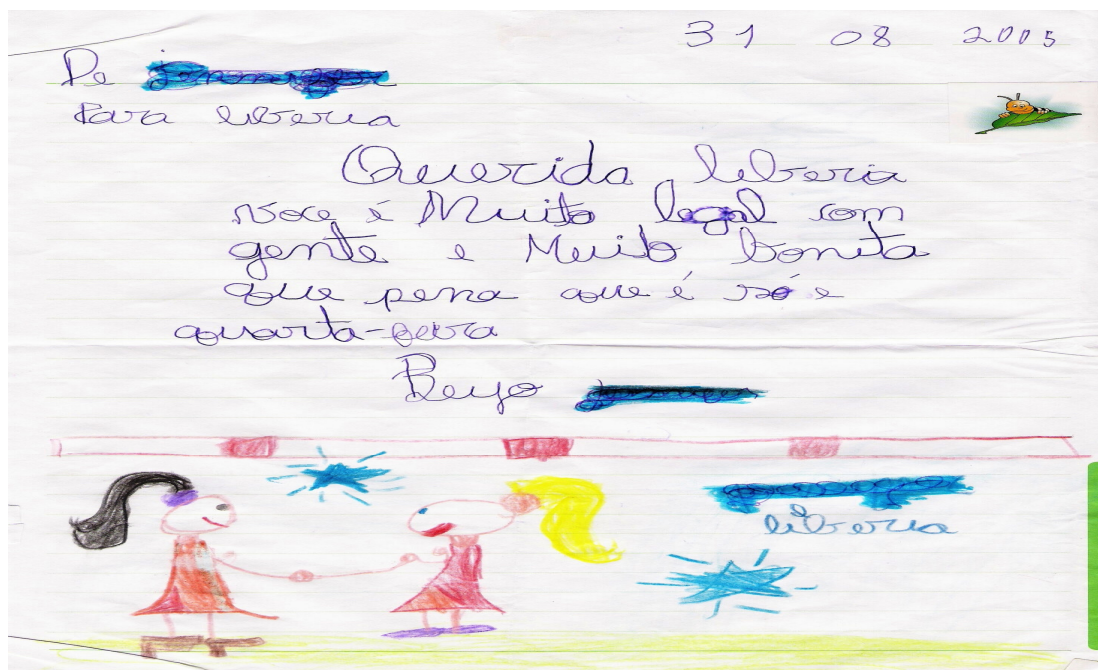 31 08 2005
De
Para liberia
Querida liberia
voce é Muito legal com
gente e Muito bonita
que pena que é só e
quarta-feira
Beijo
e
liberia